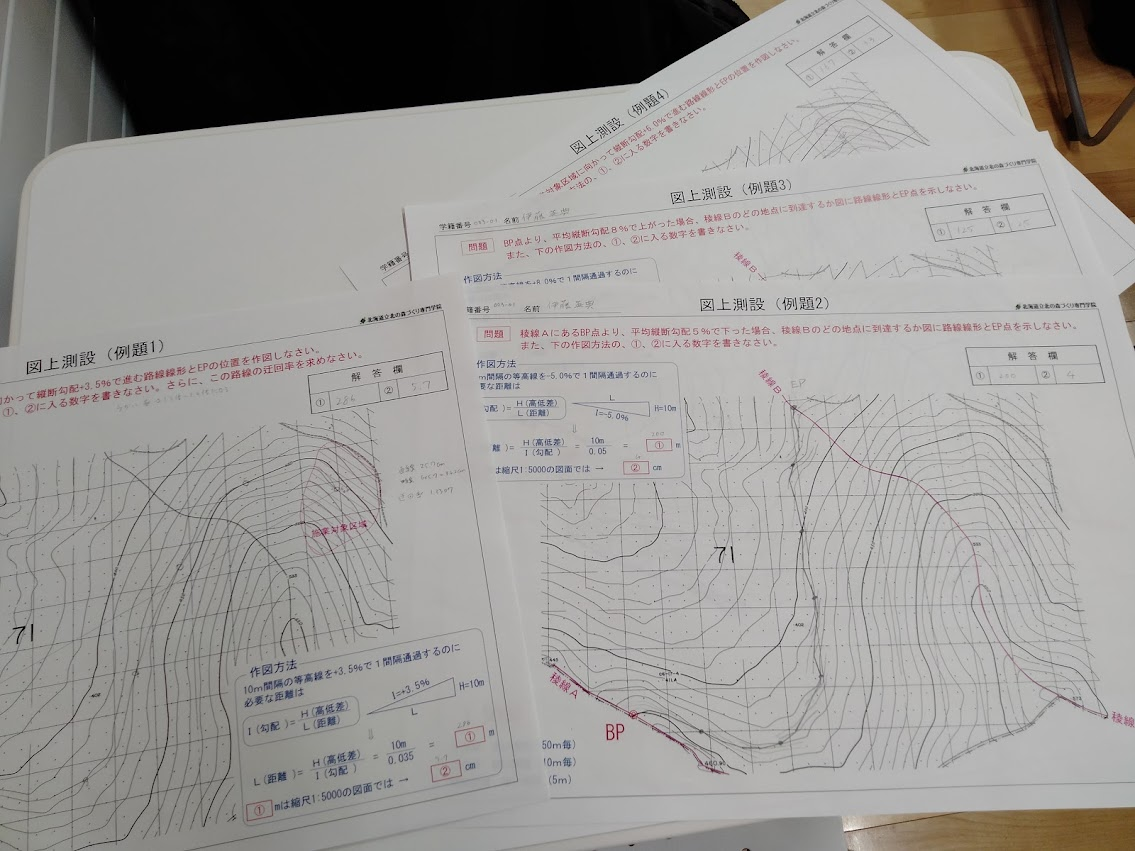 図上測設（例題4）
解答欄
① 117 ②
対象区域に向かって縦断勾配+6.0%で進む路線線形とEPの位置を作図しなさい。
①、②に入る数字を書きなさい。
北海道立北の森づくり専門学院
図上測設（例題3）
学籍番号 名前 伊藤
問題 BP点より、平均縦断勾配8％で上がった場合、稜線Bのどの地点に到達するか図に路線線形とEP点を示しなさい。
また、下の作図方法の、①、②に入る数字を書きなさい。
解答欄
① 125 ②
作図方法
+8.0%で1間隔通過するのに
稜線B
学籍番号
北海道立北の森づくり専門学院
図上測設（例題2）
籍番号 名前 伊藤
問題 稜線AにあるBP点より、平均縦断勾配5％で下った場合、稜線Bのどの地点に到達するか図に路線線形とEP点を示しなさい。
また、下の作図方法の、①、②に入る数字を書きなさい。
解答欄
① 200 ② 4
作図方法
m間隔の等高線を-5.0%で1間隔通過するのに
要な距離は
勾配）= H(高低差) / L(距離)
L
I=-5.0%
H=10m
⇓
離）= H(高低差) / I(勾配) = 10m / 0.05 = ① m
は縮尺1:5000の図面では → ② cm
稜線B
EP
71
稜線A
BP
稜線
50m毎）
10m毎）
(5m)
北海道立北の森づくり専門学院
図上測設（例題1）
向かって縦断勾配+3.5%で進む路線線形とEPの位置を作図しなさい。
、①、②に入る数字を書きなさい。さらに、この路線の迂回率を求めなさい。
解答欄
① 286 ② 5.7
施業対象区域
71
作図方法
10m間隔の等高線を+3.5%で1間隔通過するのに
必要な距離は
I（勾配）= H(高低差) / L(距離)
I=+3.5%
H=10m
L
⇓
L（距離）= H(高低差) / I(勾配) = 10m / 0.035 = ① m
①mは縮尺1:5000の図面では → ② cm